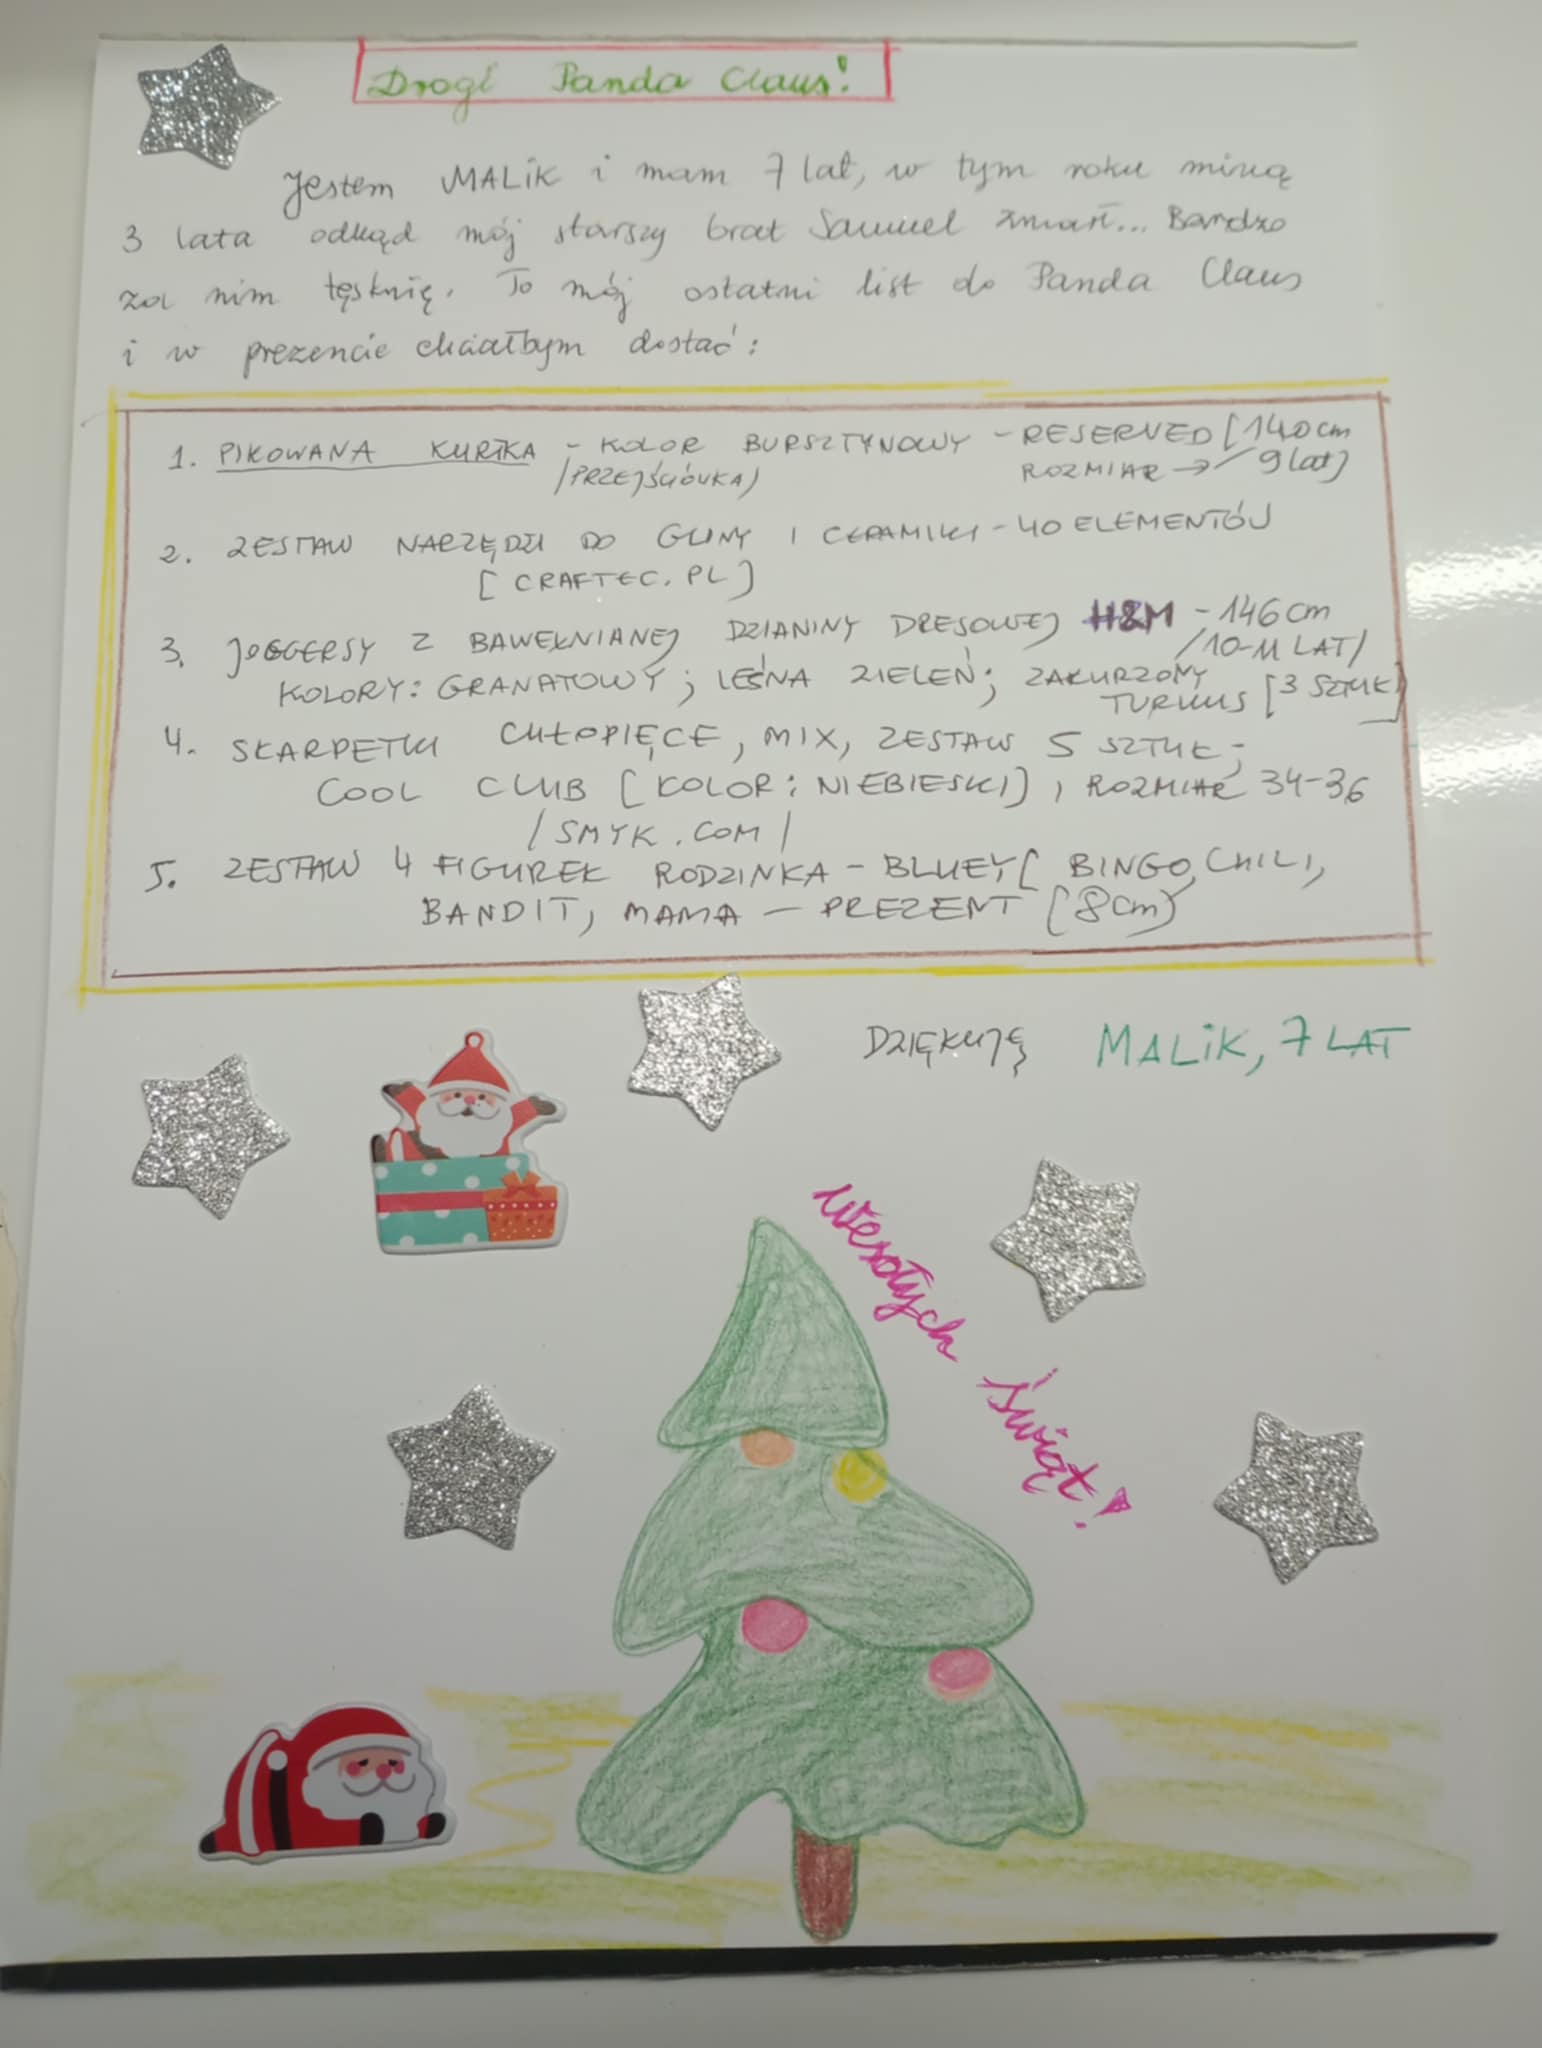 Drogi Panda Claus!
Jestem MALiK i mam 7 lat, w tym roku miną
3 lata odkąd mój starszy brat Samuel zmarł... Bardzo
za nim tęsknię. To mój ostatni list do Panda Claus
i w prezencie chciałbym dostać:
1. PIKOWANA KURTKA - KOLOR BURSZTYNOWY - RESERVED [140cm
/PRZEJŚCIÓWKA/ ROZMIAR → / 9 lat]
2. ZESTAW NARZĘDZI DO GLINY I CERAMIKI - 40 ELEMENTÓW
[CRAFTEC.PL]
3. JOGGERSY Z BAWEŁNIANEJ DZIANINY DRESOWEJ H&M - 146cm
/10-11 LAT/
KOLORY: GRANATOWY; LEŚNA ZIELEŃ; ZAKURZONY
TURKUS [3 SZTUKI]
4. SKARPETKI CHŁOPIĘCE, MIX, ZESTAW 5 SZTUK;
COOL CLUB [KOLOR: NIEBIESKI], ROZMIAR 34-36
/SMYK.COM/
5. ZESTAW 4 FIGUREK RODZINKA - BLUEY [BINGO, CHILI,
BANDIT, MAMA - PREZENT [8cm]
DZIĘKUJĘ MALiK, 7 LAT
Wesołych Świąt!